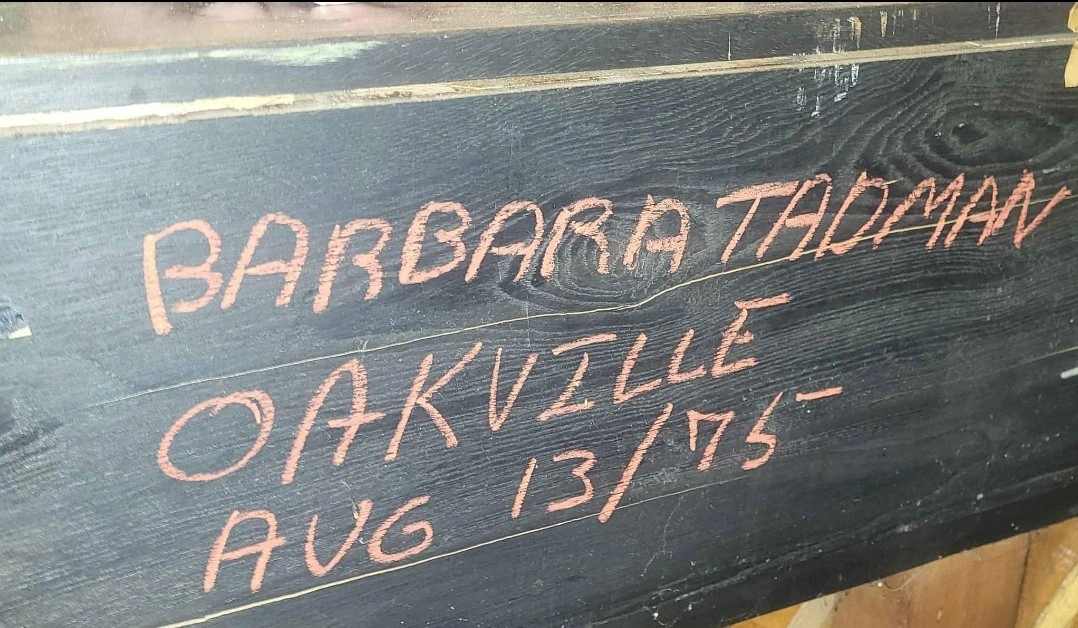 BARBARA TADMAN
OAKVILLE
AUG 13/75